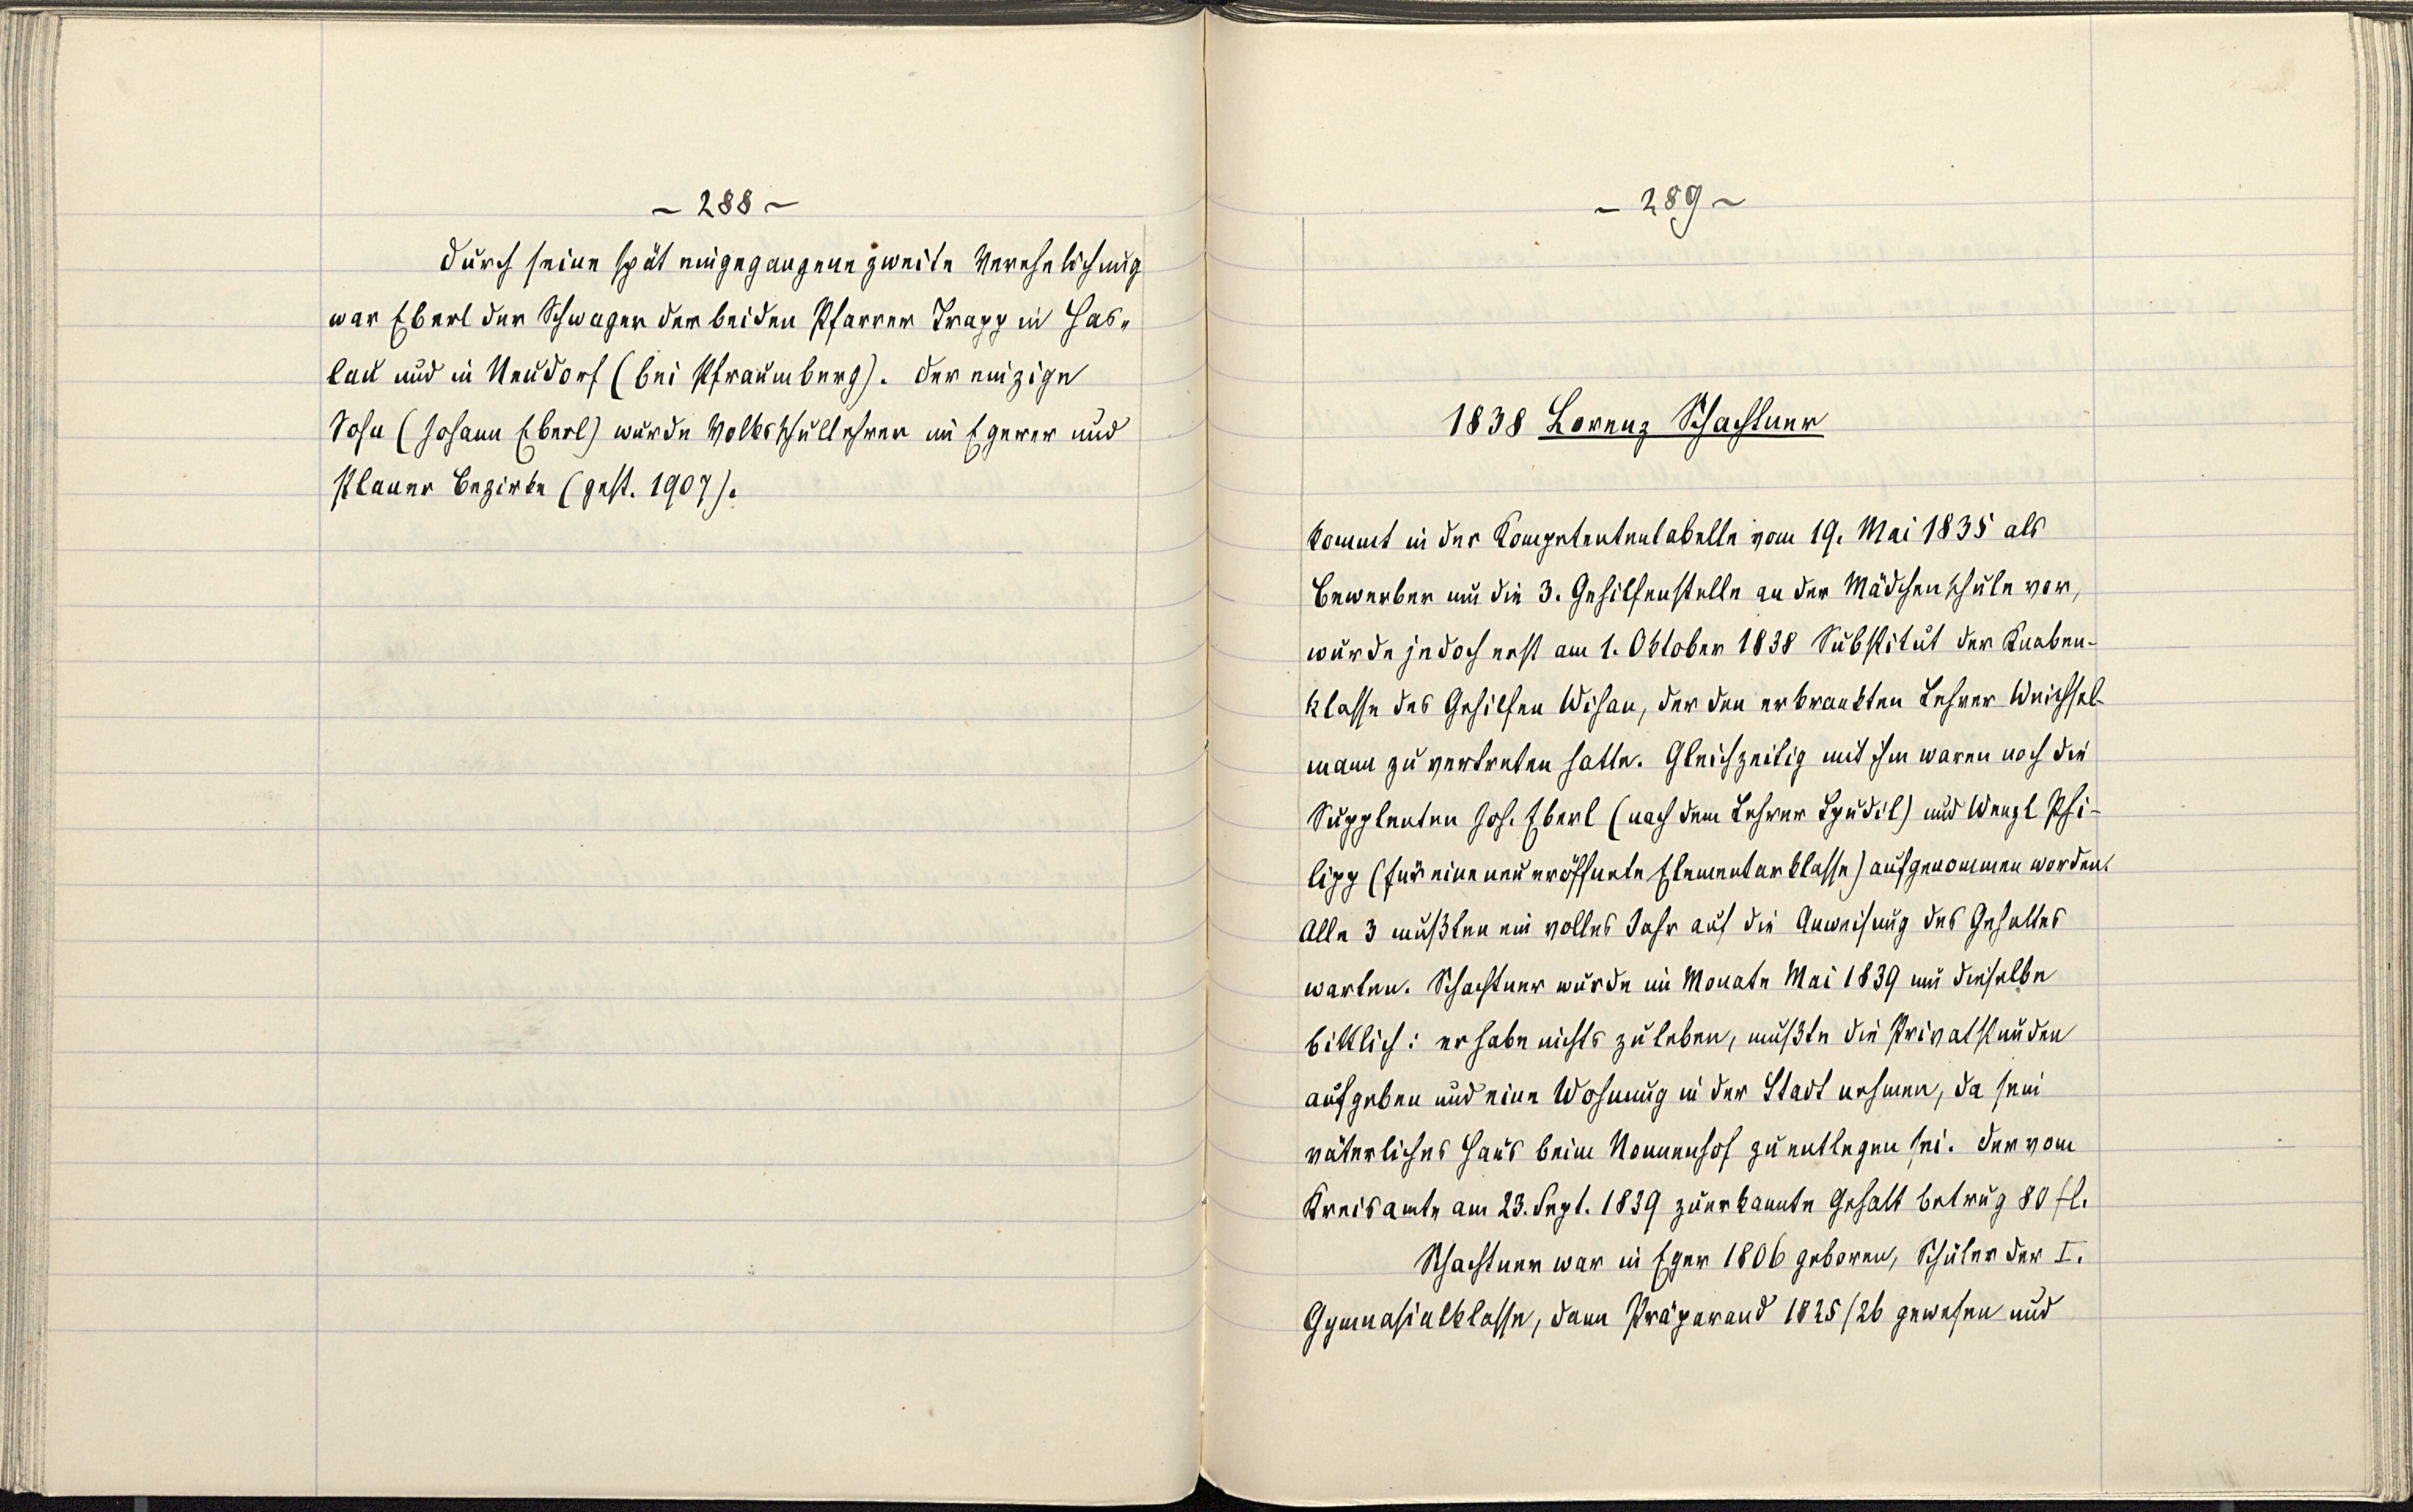 ~ 288 ~
Durch seine spät eingegangene zweite Verehelichung
war Eberl der Schwager der beiden Pfarrer Trapp in Has-
lau und in Neudorf (bei Pfraumberg). Der einzige
Sohn (Johann Eberl) wurde Volksschullehrer im Egerer und
Planer Bezirke (gest. 1907).
~ 289 ~
1838 Lorenz Schachtner
kommt in der Kompetententabelle vom 19. Mai 1835 als
Bewerber um die 3. Gehilfenstelle an der Mädchenschule vor,
wurde jedoch erst am 1. Oktober 1838 Substitut der Knaben-
klasse des Gehilfen Wihan, der den erkrankten Lehrer Weichsel-
mann zu vertreten hatte. Gleichzeitig mit ihm waren noch die
Supplenten Joh. Eberl (nach dem Lehrer Spudil) und Wenzl Phi-
lipp (für eine neu eröffnete Elementarklasse) aufgenommen worden.
Alle 3 mußten ein volles Jahr auf die Anweisung des Gehaltes
warten. Schachtner wurde im Monate Mai 1839 um dieselbe
bittlich: er habe nichts zu leben, mußte die Privatstunden
aufgeben und eine Wohnung in der Stadt nehmen, da sein
väterliches Haus beim Nonnenhof zu entlegen sei. Der vom
Kreisamte am 23. Sept. 1839 zuerkannte Gehalt betrug 80 fl.
Schachtner war in Eger 1806 geboren, Schüler der I.
Gymnasialklasse, dann Präparand 1825/26 gewesen und